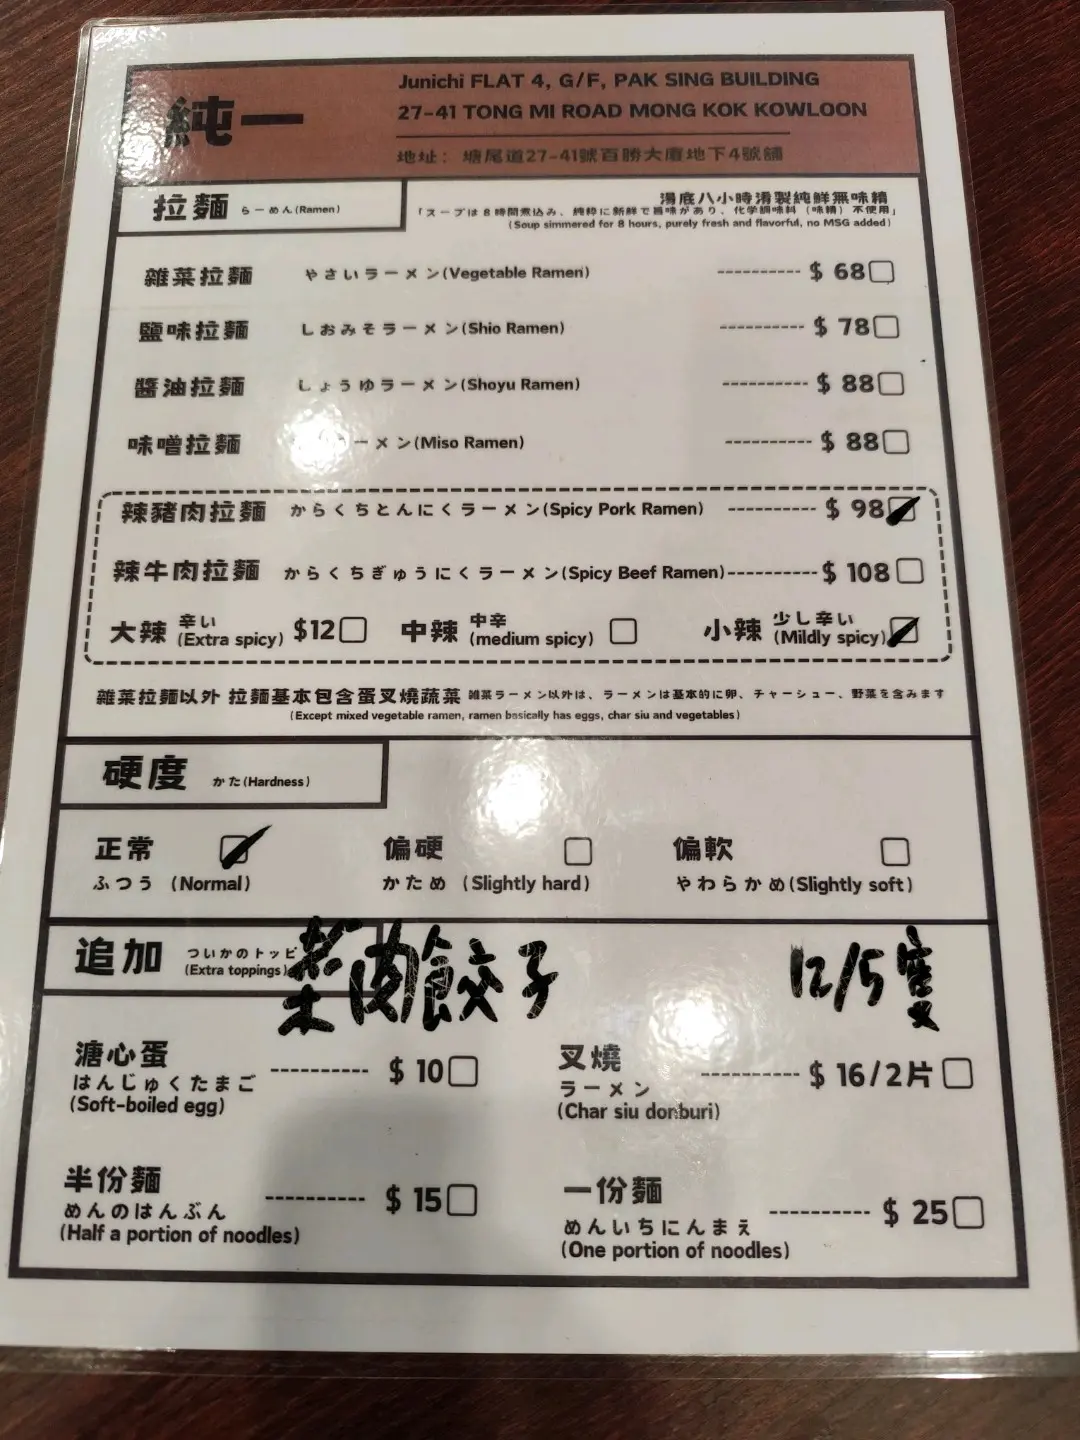 純一
Junichi FLAT 4, G/F, PAK SING BUILDING
27-41 TONG MI ROAD MONG KOK KOWLOON
地址： 塘尾道27-41號百勝大廈地下4號舖
拉麵 らーめん(Ramen)
湯底八小時淆製純鮮無味精
「スープは8時間煮込み、純粋に新鮮で旨味があり、化学調味料（味精）不使用」
(Soup simmered for 8 hours, purely fresh and flavorful, no MSG added)
雜菜拉麵 やさいラーメン(Vegetable Ramen) ---------- $ 68
鹽味拉麵 しおみそラーメン(Shio Ramen) ---------- $ 78
醬油拉麵 しょうゆラーメン(Shoyu Ramen) ---------- $ 88
味噌拉麵 ーメン(Miso Ramen) ---------- $ 88
辣豬肉拉麵 からくちとんにくラーメン(Spicy Pork Ramen) ---------- $ 98
辣牛肉拉麵 からくちぎゅうにくラーメン(Spicy Beef Ramen)---------- $ 108
大辣 辛い (Extra spicy) $12 中辣 中辛 (medium spicy) 小辣 少し辛い (Mildly spicy)
雜菜拉麵以外 拉麵基本包含蛋叉燒蔬菜 雑菜ラーメン以外は、ラーメンは基本的に卵、チャーシュー、野菜を含みます
(Except mixed vegetable ramen, ramen basically has eggs, char siu and vegetables)
硬度 かた(Hardness)
正常 偏硬 偏軟
ふつう (Normal) かため (Slightly hard) やわらかめ(Slightly soft)
追加 ついかのトッピ (Extra toppings)
菜肉餃子 12/5隻
溏心蛋 はんじゅくたまご (Soft-boiled egg) ---------- $ 10
叉燒 ラーメン (Char siu donburi) ---------- $ 16/2片
半份麵 めんのはんぶん (Half a portion of noodles) ---------- $ 15
一份麵 めんいちにんまえ (One portion of noodles) ---------- $ 25